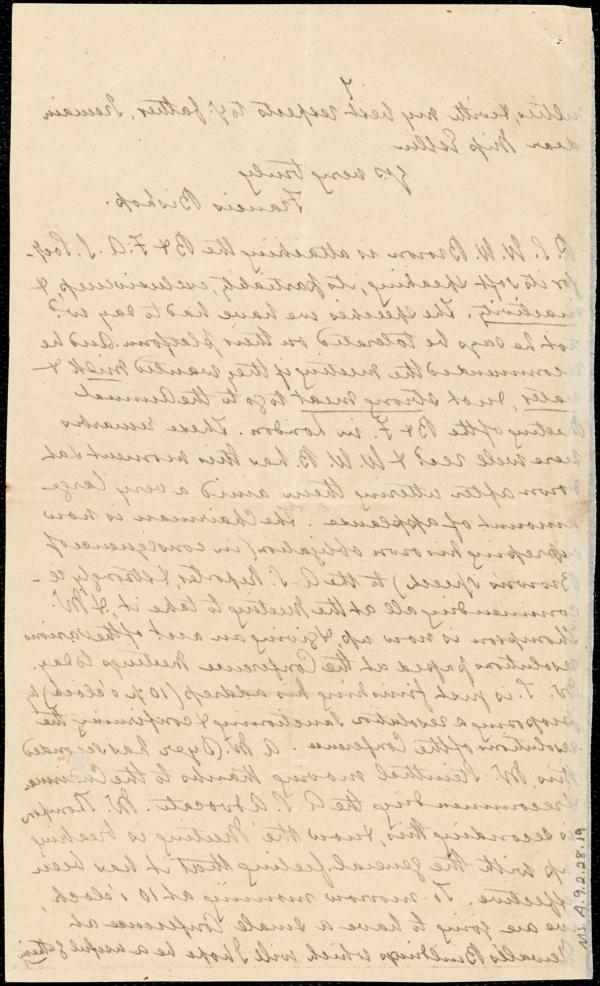 7
with my best respects to yr. father, I remain
dear Miss Estlin
Yrs very truly
Francis Bishop.
P.S. W. W. Brown is attacking the B & F. A. S. Socy.
for its soft speaking, its partiality, exclusiveness, &
inactivity. The speeches we have had to day wd.
not he says be tolerated on their platform. And he
recommended the meeting if they wanted milk &
water, & not strong meat to go to the Annual
Meeting of the B & F. in London. These remarks
were well recd. & W. W. B. has this moment sat
down after uttering them amid a very large
amount of applause. The Chairman is now
expressing his own obligation (in consequence of
Brown's speech) to the A. S. Reporter, & strongly re-
commending all at the Meeting to take it. & Mr.
Thompson is now up, & giving an acct of the various
resolutions passed at the Conference Meetings to day.
Mr T. is just finishing his address (10 p. o'clock) by
proposing a resolution sanctioning & confirming the
resolutions of the Conference. A Mr. Dyer has seconded
this. Mr. Steinthal moving thanks to the Chairman
& recommending the A. S. Advocate. Mr. Thompson
is seconding this, & now the Meeting is breaking
up with the general feeling that it has been
effective. To morrow morning at 10 o'clock,
we are going to have a small Conference at
Buildings which will I hope be a useful
Ms.A.9.2.28.19